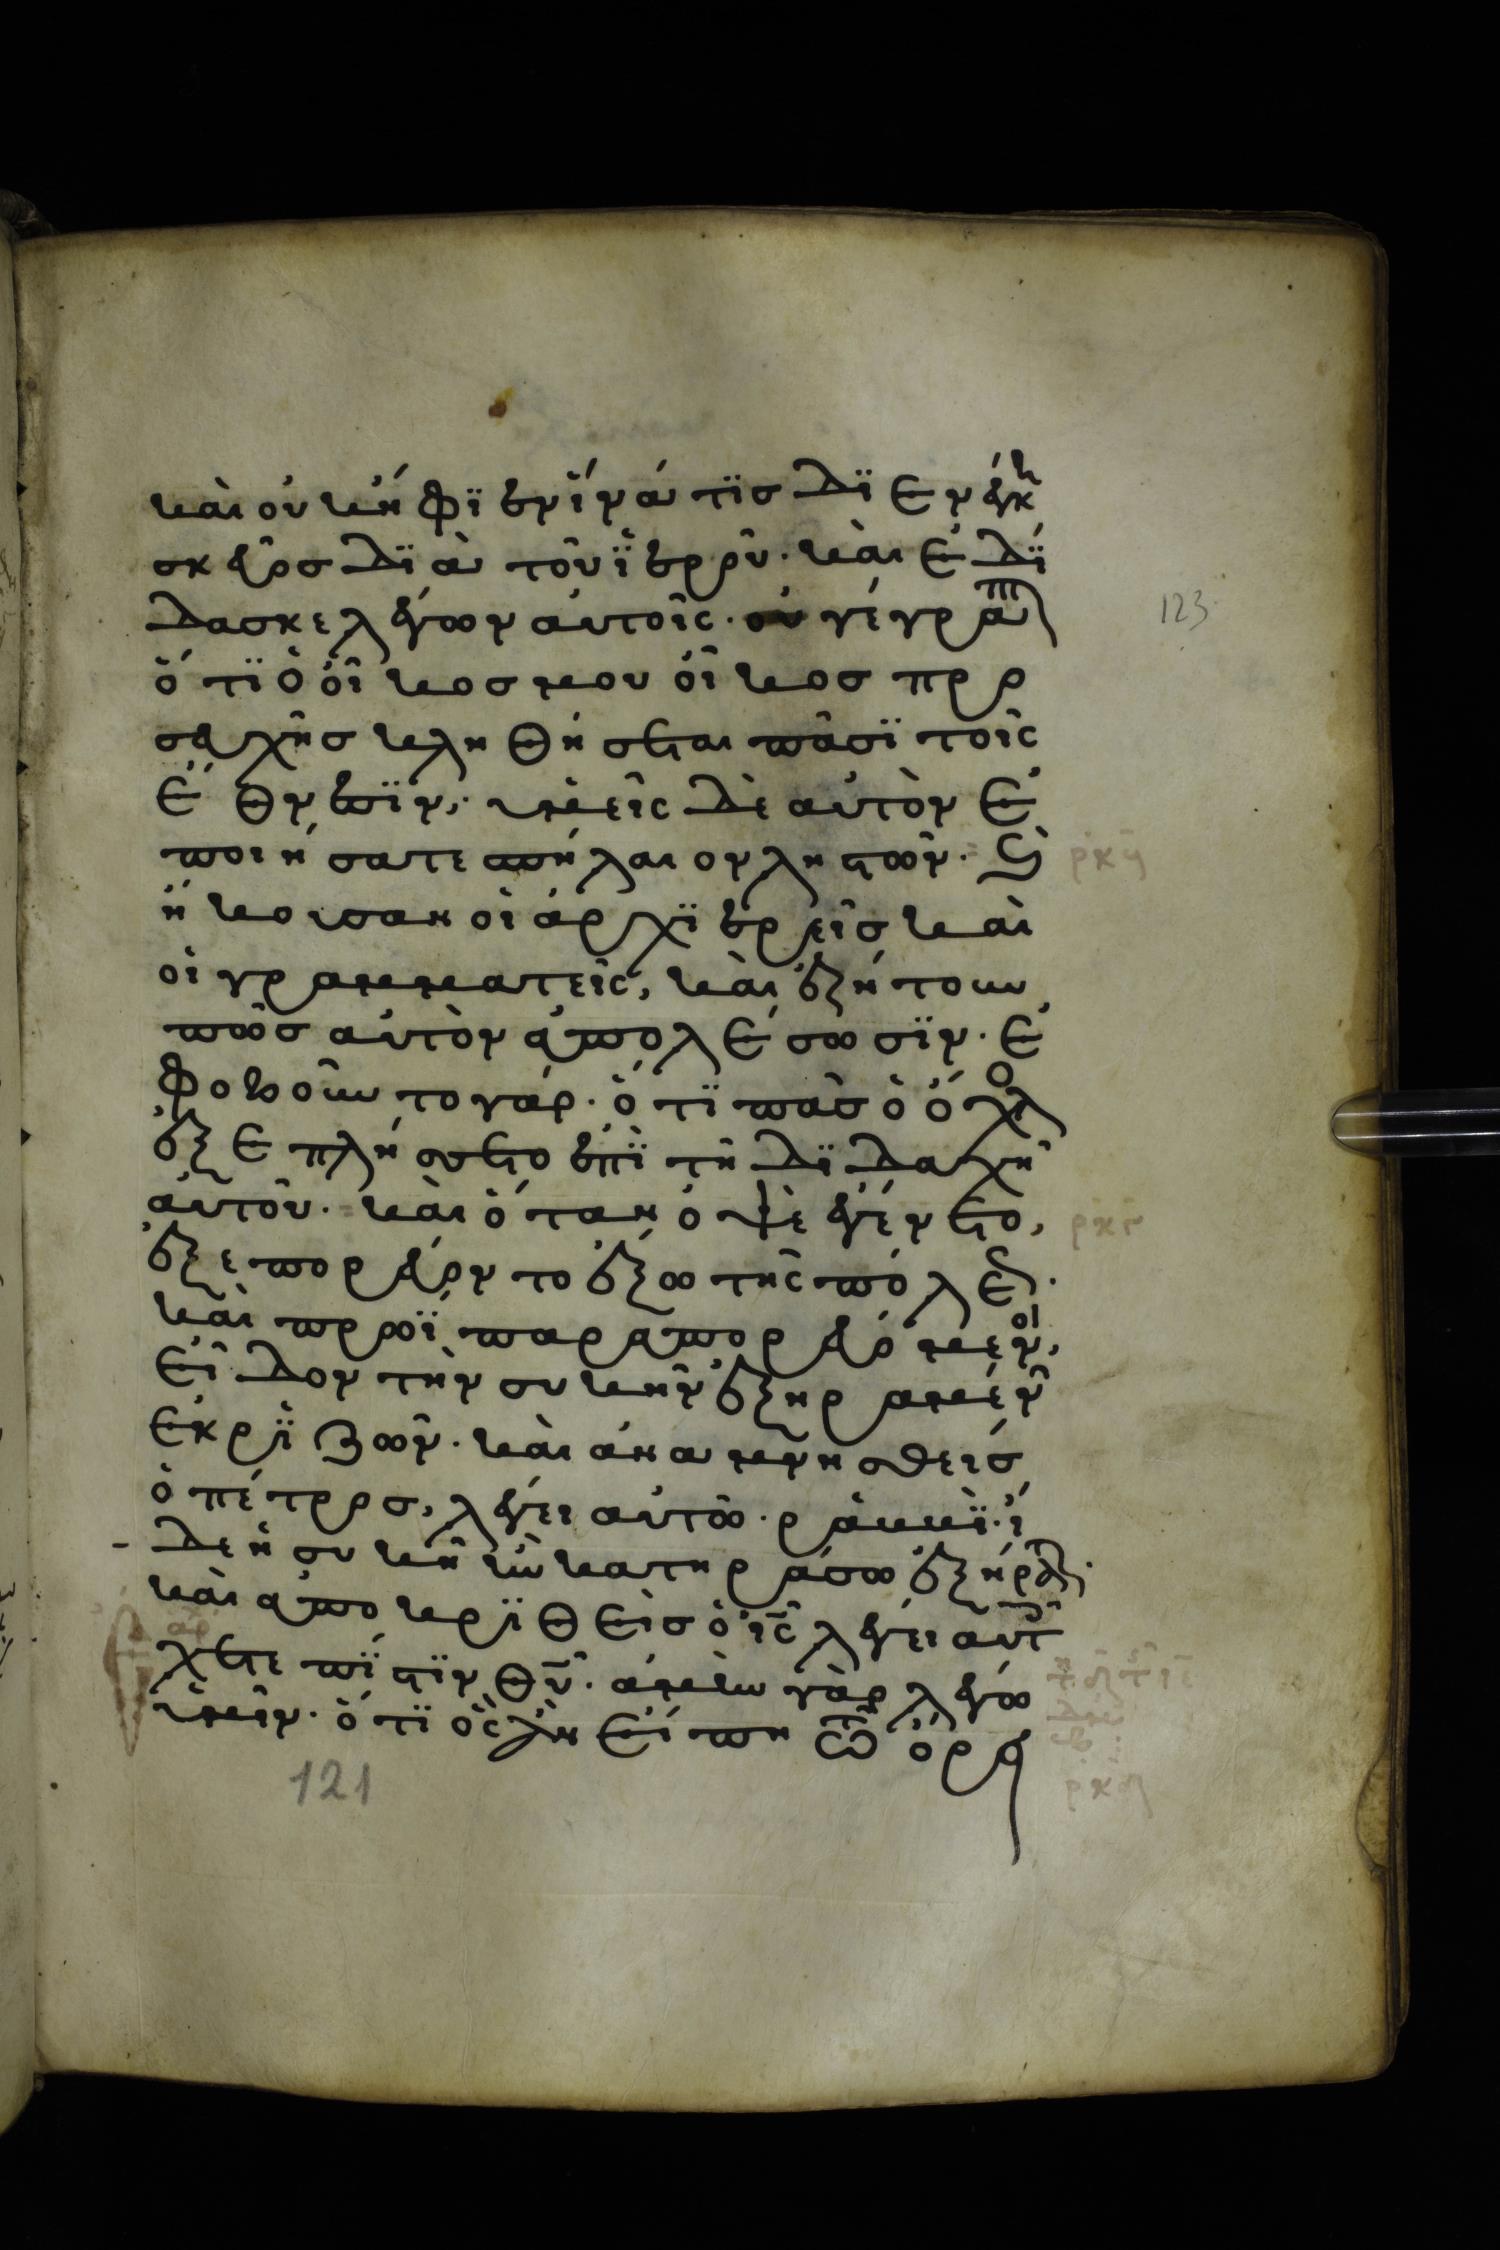 καὶ οὐκ ἤφϊεν ἵνα τὶσ δϊενέγκη
σκεῦοσ δϊὰ τοῦ ϊεροῦ· καὶ ἐδί
δασκε λέγων αὐτοῖς· οὐ γέγραπ
ὅτϊ ὁ οἶκοσ μου οἶκοσ προ
σευχῆσ κληθήσεται πᾶσϊ τοῖς
ἔθνεσϊν· ὑμεῖς δὲ αὐτὸν ἐ
ποιήσατε σπήλαιον ληστῶν· Ϛ
ἤκουσαν οἱ ἀρχϊερεῖσ καὶ
οἱ γραμματεῖς, καὶ ἐζήτουν
πῶσ αὐτὸν ἀπολέσωσϊν· ἐ
φοβοῦντο γάρ· ὅτϊ πᾶσ ὁ ὄχλο
ἐξεπλήσσετο ἐπῒ τῆ δϊδαχῆ
αὐτοῦ· καὶ ὅταν ὀψὲ ἐγένετο,
ἐξεπορεύοντο ἔξω τῆς πόλεως·
καὶ πρωῒ παραπορευόμενοι,
εἶδον τὴν συκῆν ἐξηραμένην
ἐκ ρϊζῶν· καὶ ἀναμνησθεὶσ
ὁ πέτροσ, λέγει αὐτῶ· ραββῒ· ἴ
δε ἡ συκῆ ἣν κατηράσω ἐξήραν·
καὶ ἀποκρϊθεὶσ ὁ ις λέγει αὐτ
ἔχετε πίστϊν θυ· ἀμὴν γὰρ λέγω
ὑμῖν· ὅτϊ ὃς ἂν εἴπη τῶ ὄρει
123
121
ρκγ
ρκδ